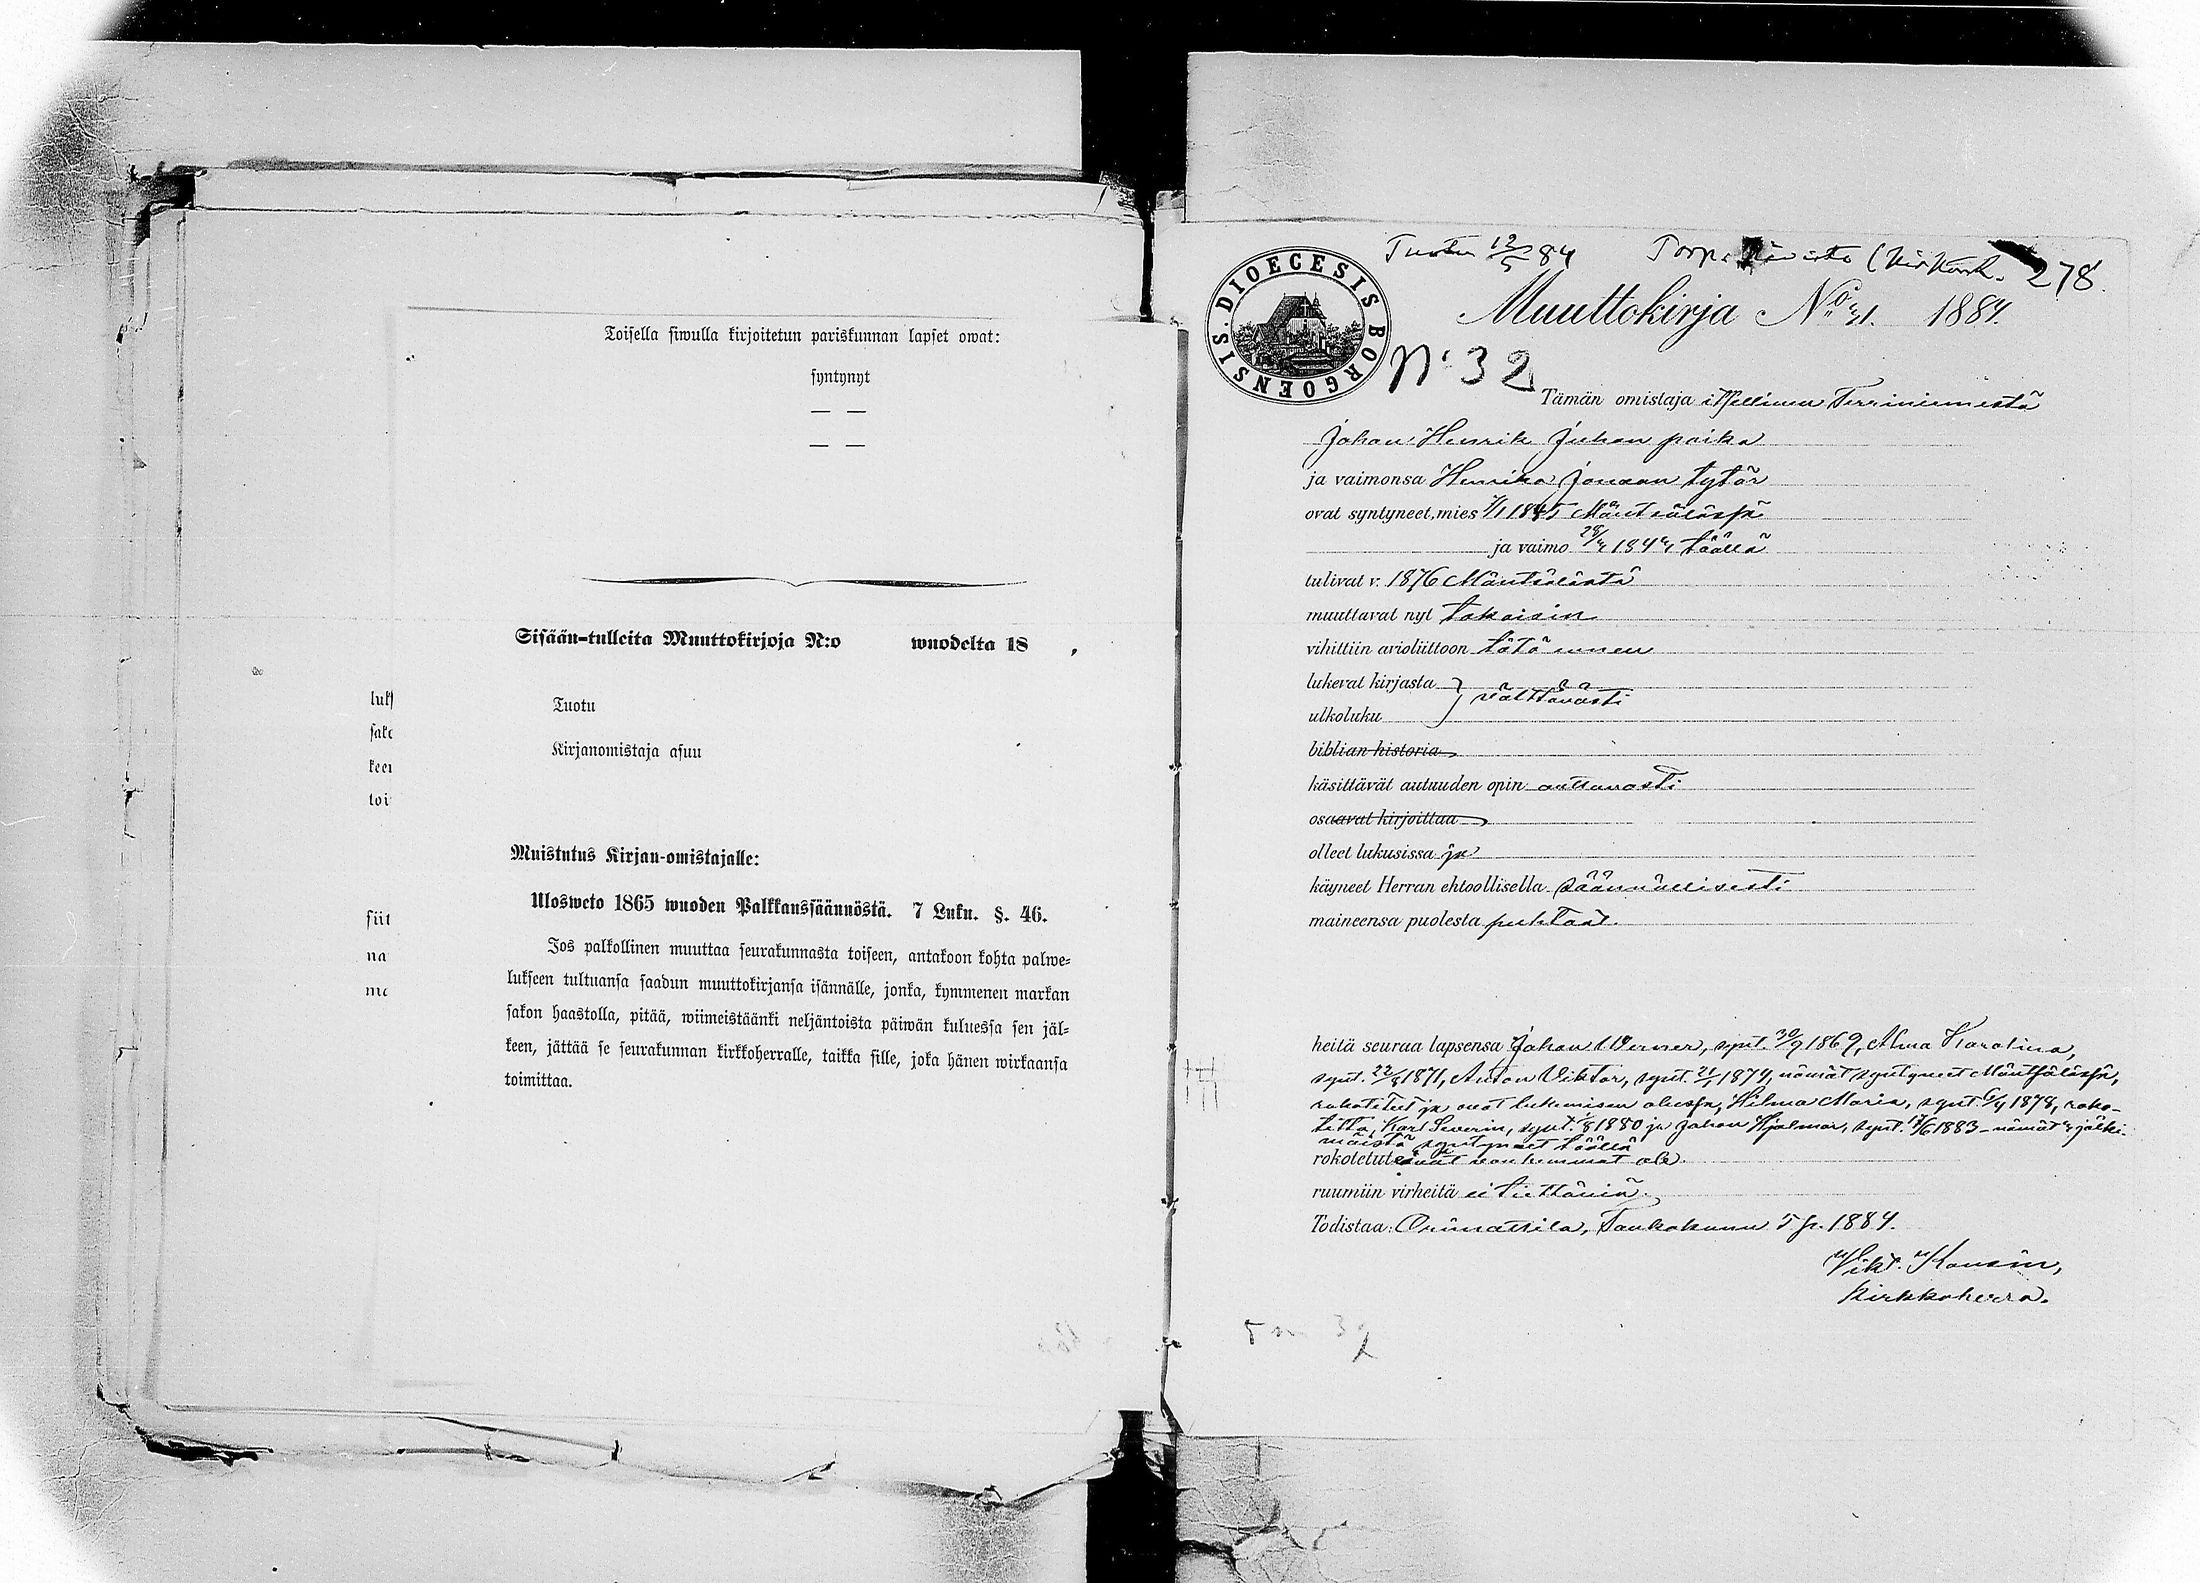 Toisella siwulla kirjoitetun pariskunnan lapset owat:
syntynyt
— —
— —
Sisään-tulleita Muuttokirjoja N:o wuodelta 18 ,
Tuotu
Kirjanomistaja asuu
Muistutus Kirjan-omistajalle:
Ulosweto 1865 wuoden Palkkaussäännöstä. 7 Luku. §. 46.
Jos palkollinen muuttaa seurakunnasta toiseen, antakoon kohta palwe=
lukseen tultuansa saadun muuttokirjansa isännälle, jonka, kymmenen markan
sakon haastolla, pitää, wiimeistäänki neljäntoista päiwän kuluessa sen jäl=
keen, jättää se seurakunnan kirkkoherralle, taikka sille, joka hänen wirkaansa
toimittaa.
luk
sak
keer
toi
siit
na
me
Tuotu 12/5 84 Torp. 278.
DIOECESIS BORGOENSIS.
Muuttokirja No 41. 1884.
No 32
Tämän omistaja itsellinen Terriniemestä
Johan Henrik Juhan poika
ja vaimonsa Henrika Jonaan tytär
ovat syntyneet, mies 1/1 1845 Mäntsälässä
ja vaimo 28/4 1844 täällä
tulivat v. 1876 Mäntsälästä
muuttavat nyt takaisin
vihittiin avioliittoon tätä ennen
lukevat kirjasta } välttävästi
ulkoluku
biblian historia
käsittävät autuuden opin auttavasti
osaavat kirjoittaa
olleet lukusissa ja
käyneet Herran ehtoollisella säännöllisesti
maineensa puolesta puhtaat.
heitä seuraa lapsensa Johan Werner, synt. 30/9 1869, Alma Karolina,
synt. 22/8 1871, Anton Viktor, synt. 21/1 1874, nämät syntyneet Mäntsälässä,
rokotetut ja ovat lukemisen alussa, Hilma Maria, synt. 6/4 1878, roko-
tettu, Karl Severin, synt. 1/8 1880 ja Johan Hjalmar, synt. 17/6 1883 - nämät 3 jälki-
mäistä syntyneet täällä
rokotetut eivät vanhemmat ole
ruumiin virheitä ei tiettäviä.
Todistaa: Orimattila, Toukokuun 5 p. 1884.
Vikt. Konsin,
Kirkkoherra.